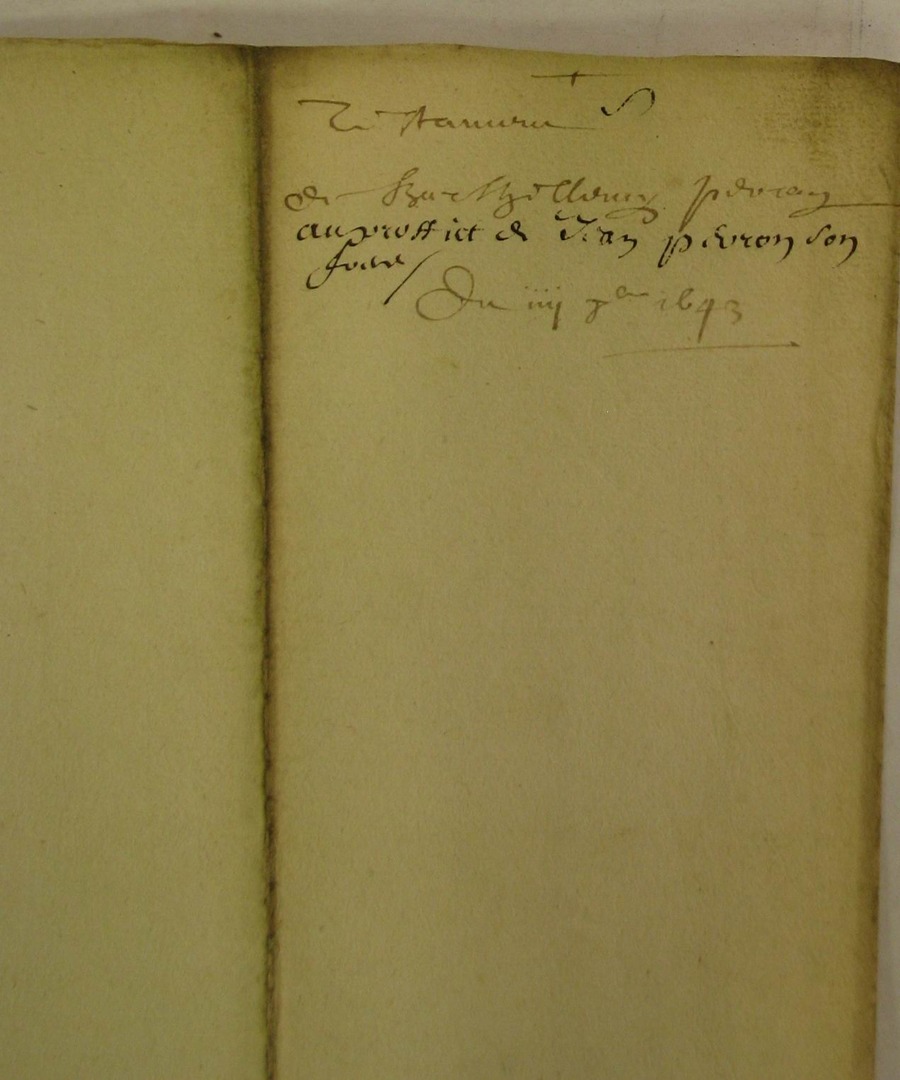 Testament
de Barthellemy peyron
au proffict de Jean peyron son
frere /
Du iiij 8bre 1643